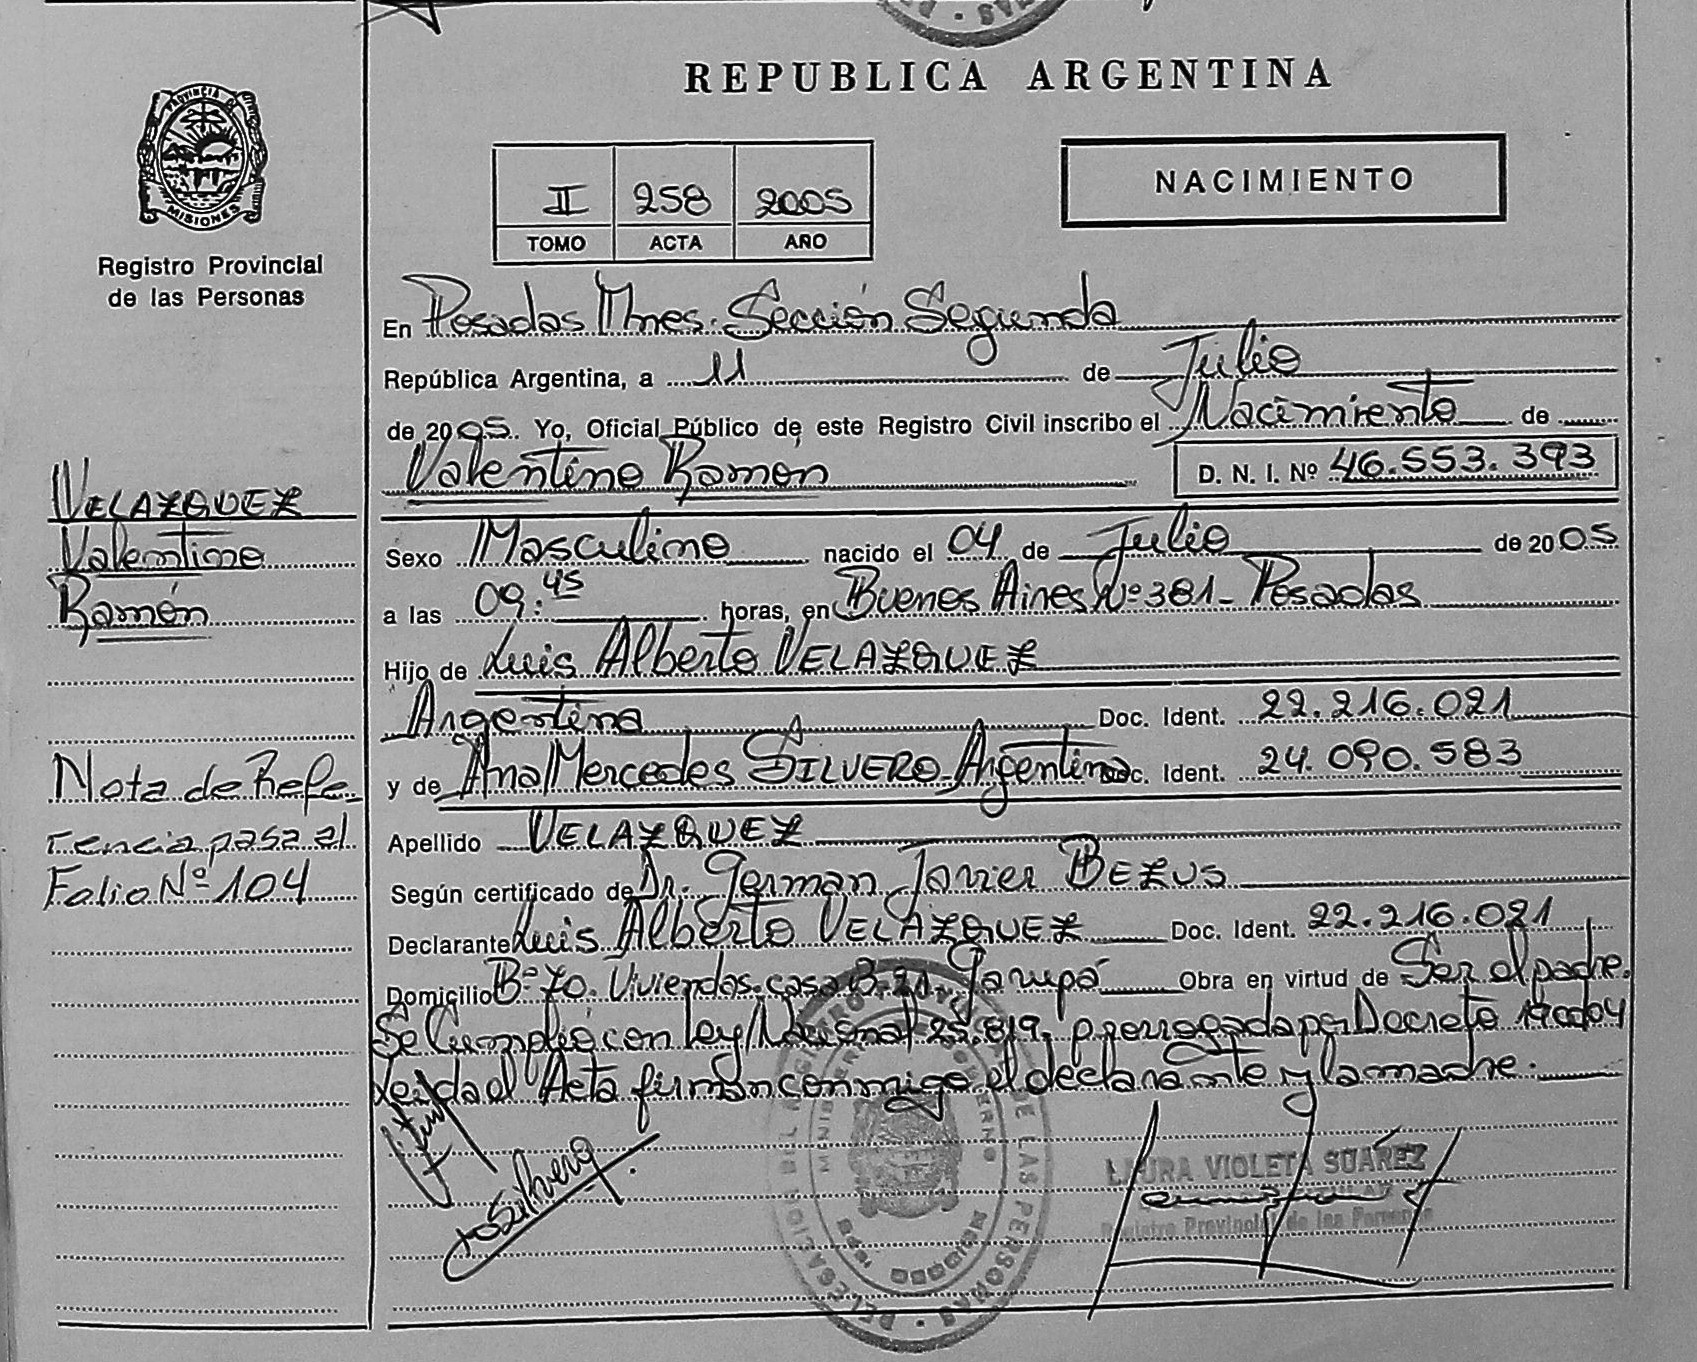 REPUBLICA ARGENTINA
PROVINCIA DE
MISIONES
Registro Provincial
de las Personas
NACIMIENTO
II 258 2005
TOMO ACTA AÑO
En Posadas Mnes. Sección Segunda
República Argentina, a 11 de Julio
de 2005. Yo, Oficial Público de este Registro Civil inscribo el Nacimiento de
Valentino Ramón D. N. I. Nº 46.553.393
Sexo Masculino nacido el 04 de Julio de 2005
a las 09:45 horas, en Buenos Aires Nº 381 - Posadas
Hijo de Luis Alberto VELAZQUEZ
Argentina Doc. Ident. 22.216.021
y de Ana Mercedes SILVERO - Argentina Doc. Ident. 24.090.583
Apellido VELAZQUEZ
Según certificado de Dr. German Javier BEZUS
Declarante Luis Alberto VELAZQUEZ Doc. Ident. 22.216.021
Domicilio Bº 70. Viviendas. casa B-21 Garupá Obra en virtud de Ser el padre.
Se Cumplió con Ley Nacional 25.819, prorrogada por Decreto 1900/04
Leída el Acta firman conmigo el declarante y la madre.
VELAZQUEZ
Valentino
Ramón
Nota de Refe-
rencia pasa al
Folio Nº 104
LAURA VIOLETA SUÁREZ
Registro Provincial de las Personas